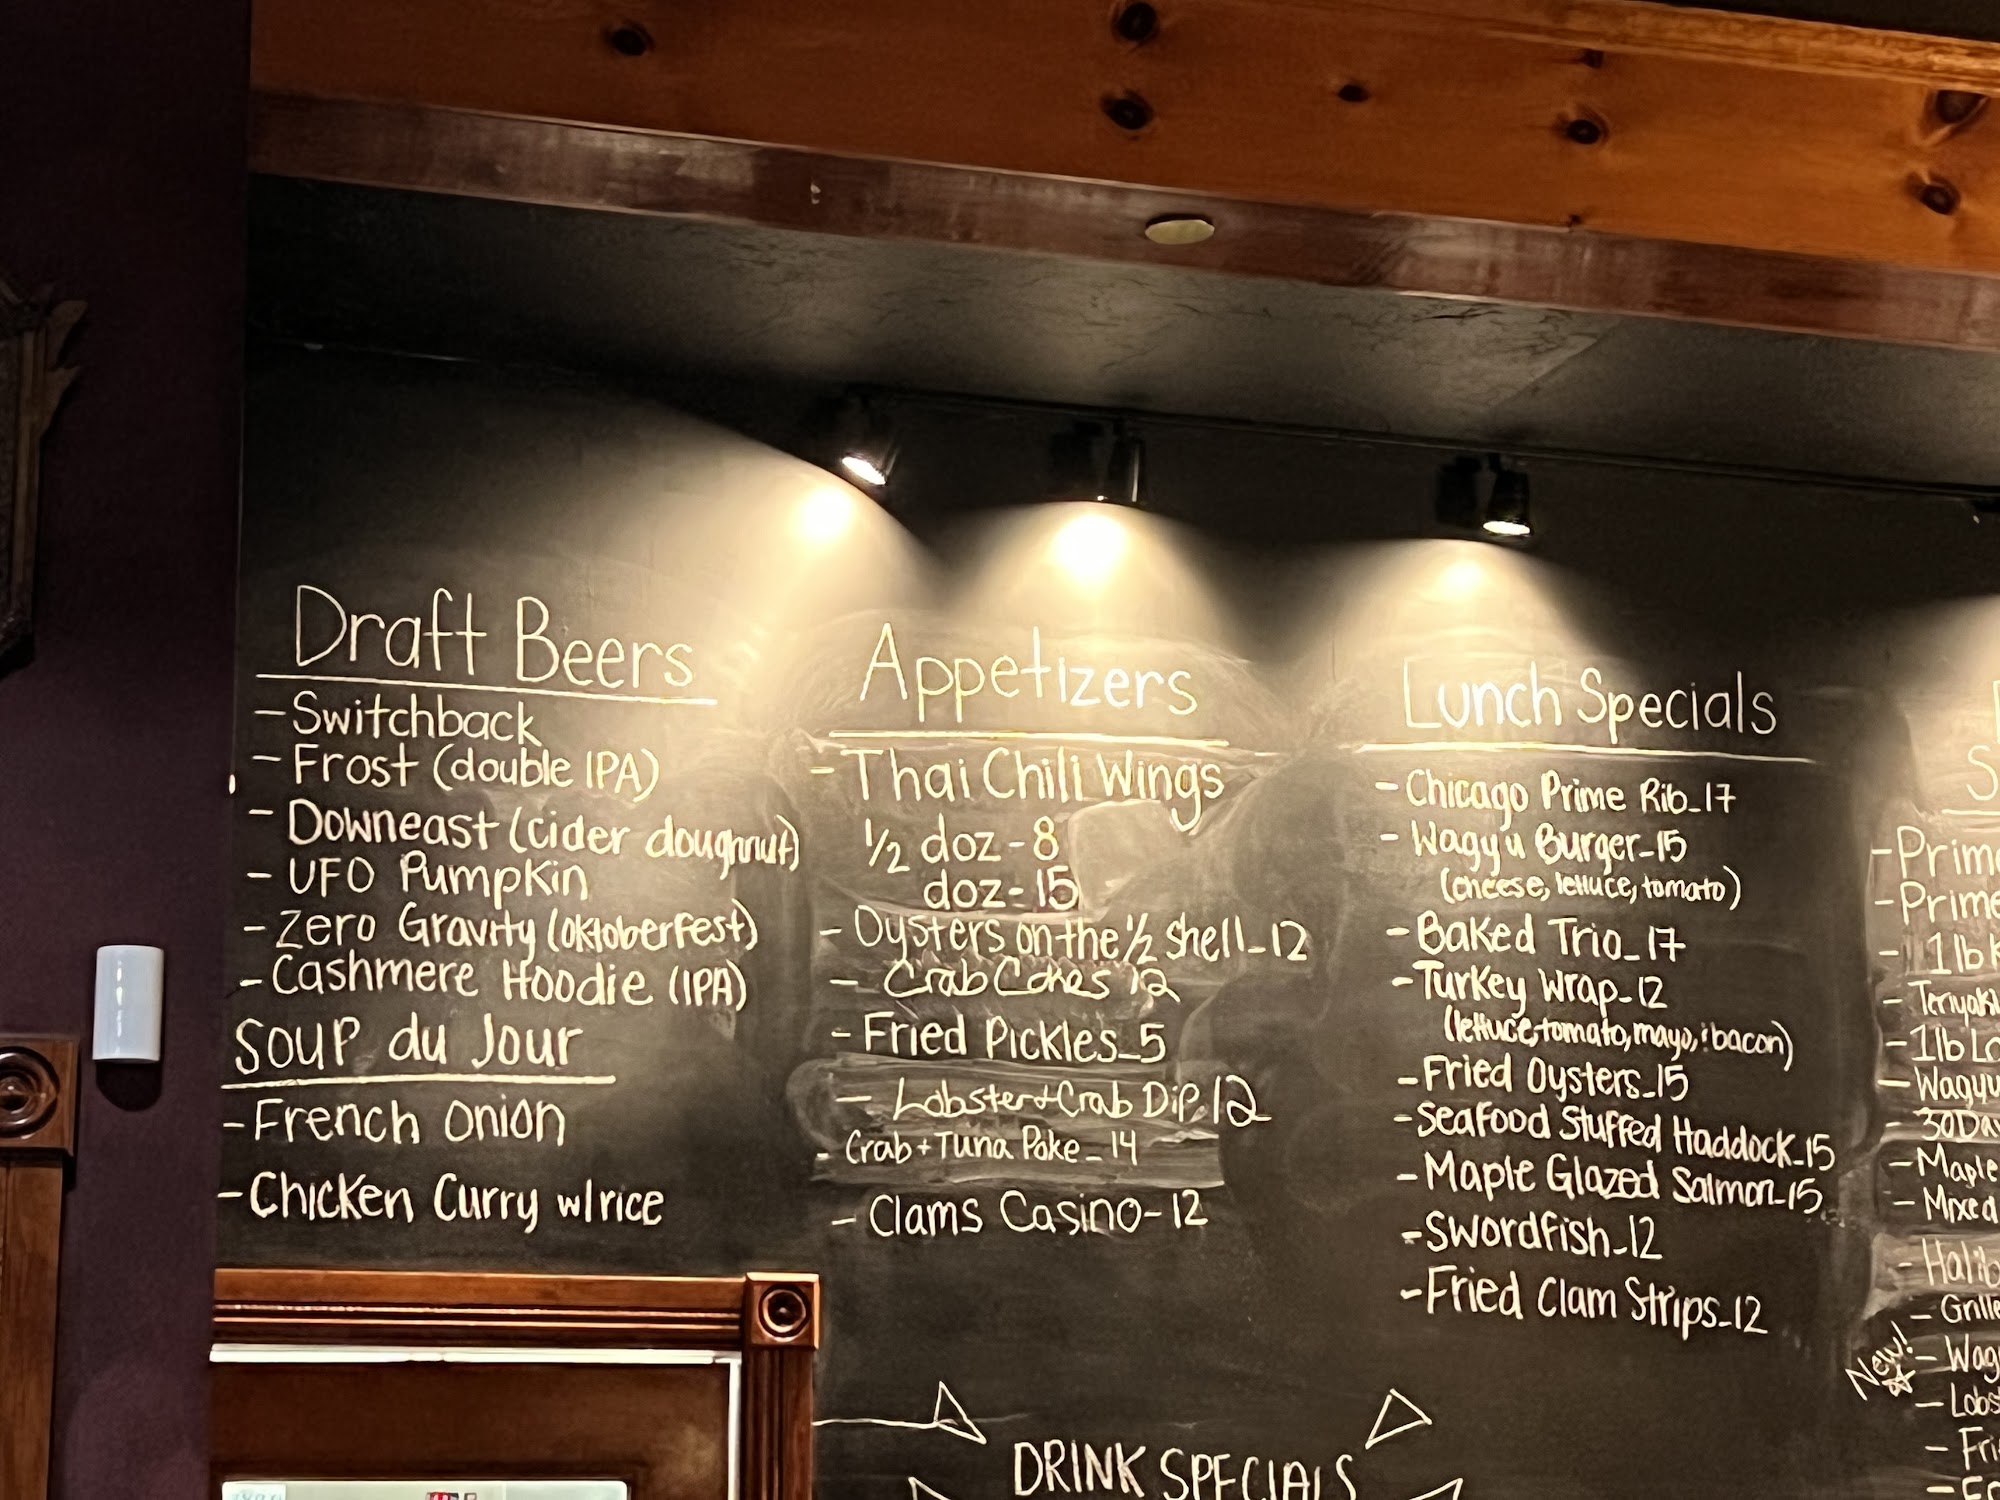 Draft Beers
- Switchback
- Frost (double IPA)
- Downeast (cider doughnut)
- UFO Pumpkin
- Zero Gravity (oktoberfest)
- Cashmere Hoodie (IPA)
Soup du Jour
- French Onion
- Chicken Curry w/rice
Appetizers
- Thai Chili Wings
1/2 doz - 8
doz - 15
- Oysters on the 1/2 shell - 12
- Crab Cakes 12
- Fried Pickles - 5
- Lobster + Crab Dip - 12
- Crab + Tuna Poke - 14
- Clams Casino - 12
Lunch Specials
- Chicago Prime Rib - 17
- Wagyu Burger - 15
(cheese, lettuce, tomato)
- Baked Trio - 17
- Turkey Wrap - 12
(lettuce, tomato, mayo, : bacon)
- Fried Oysters - 15
- Seafood Stuffed Haddock - 15
- Maple Glazed Salmon - 15
- Swordfish - 12
- Fried Clam Strips - 12
DRINK SPECIALS
- Prime
- Prime
- 1lb
- 1lb
- Wagyu
- 30 Day
- Maple
- Mixed
New!